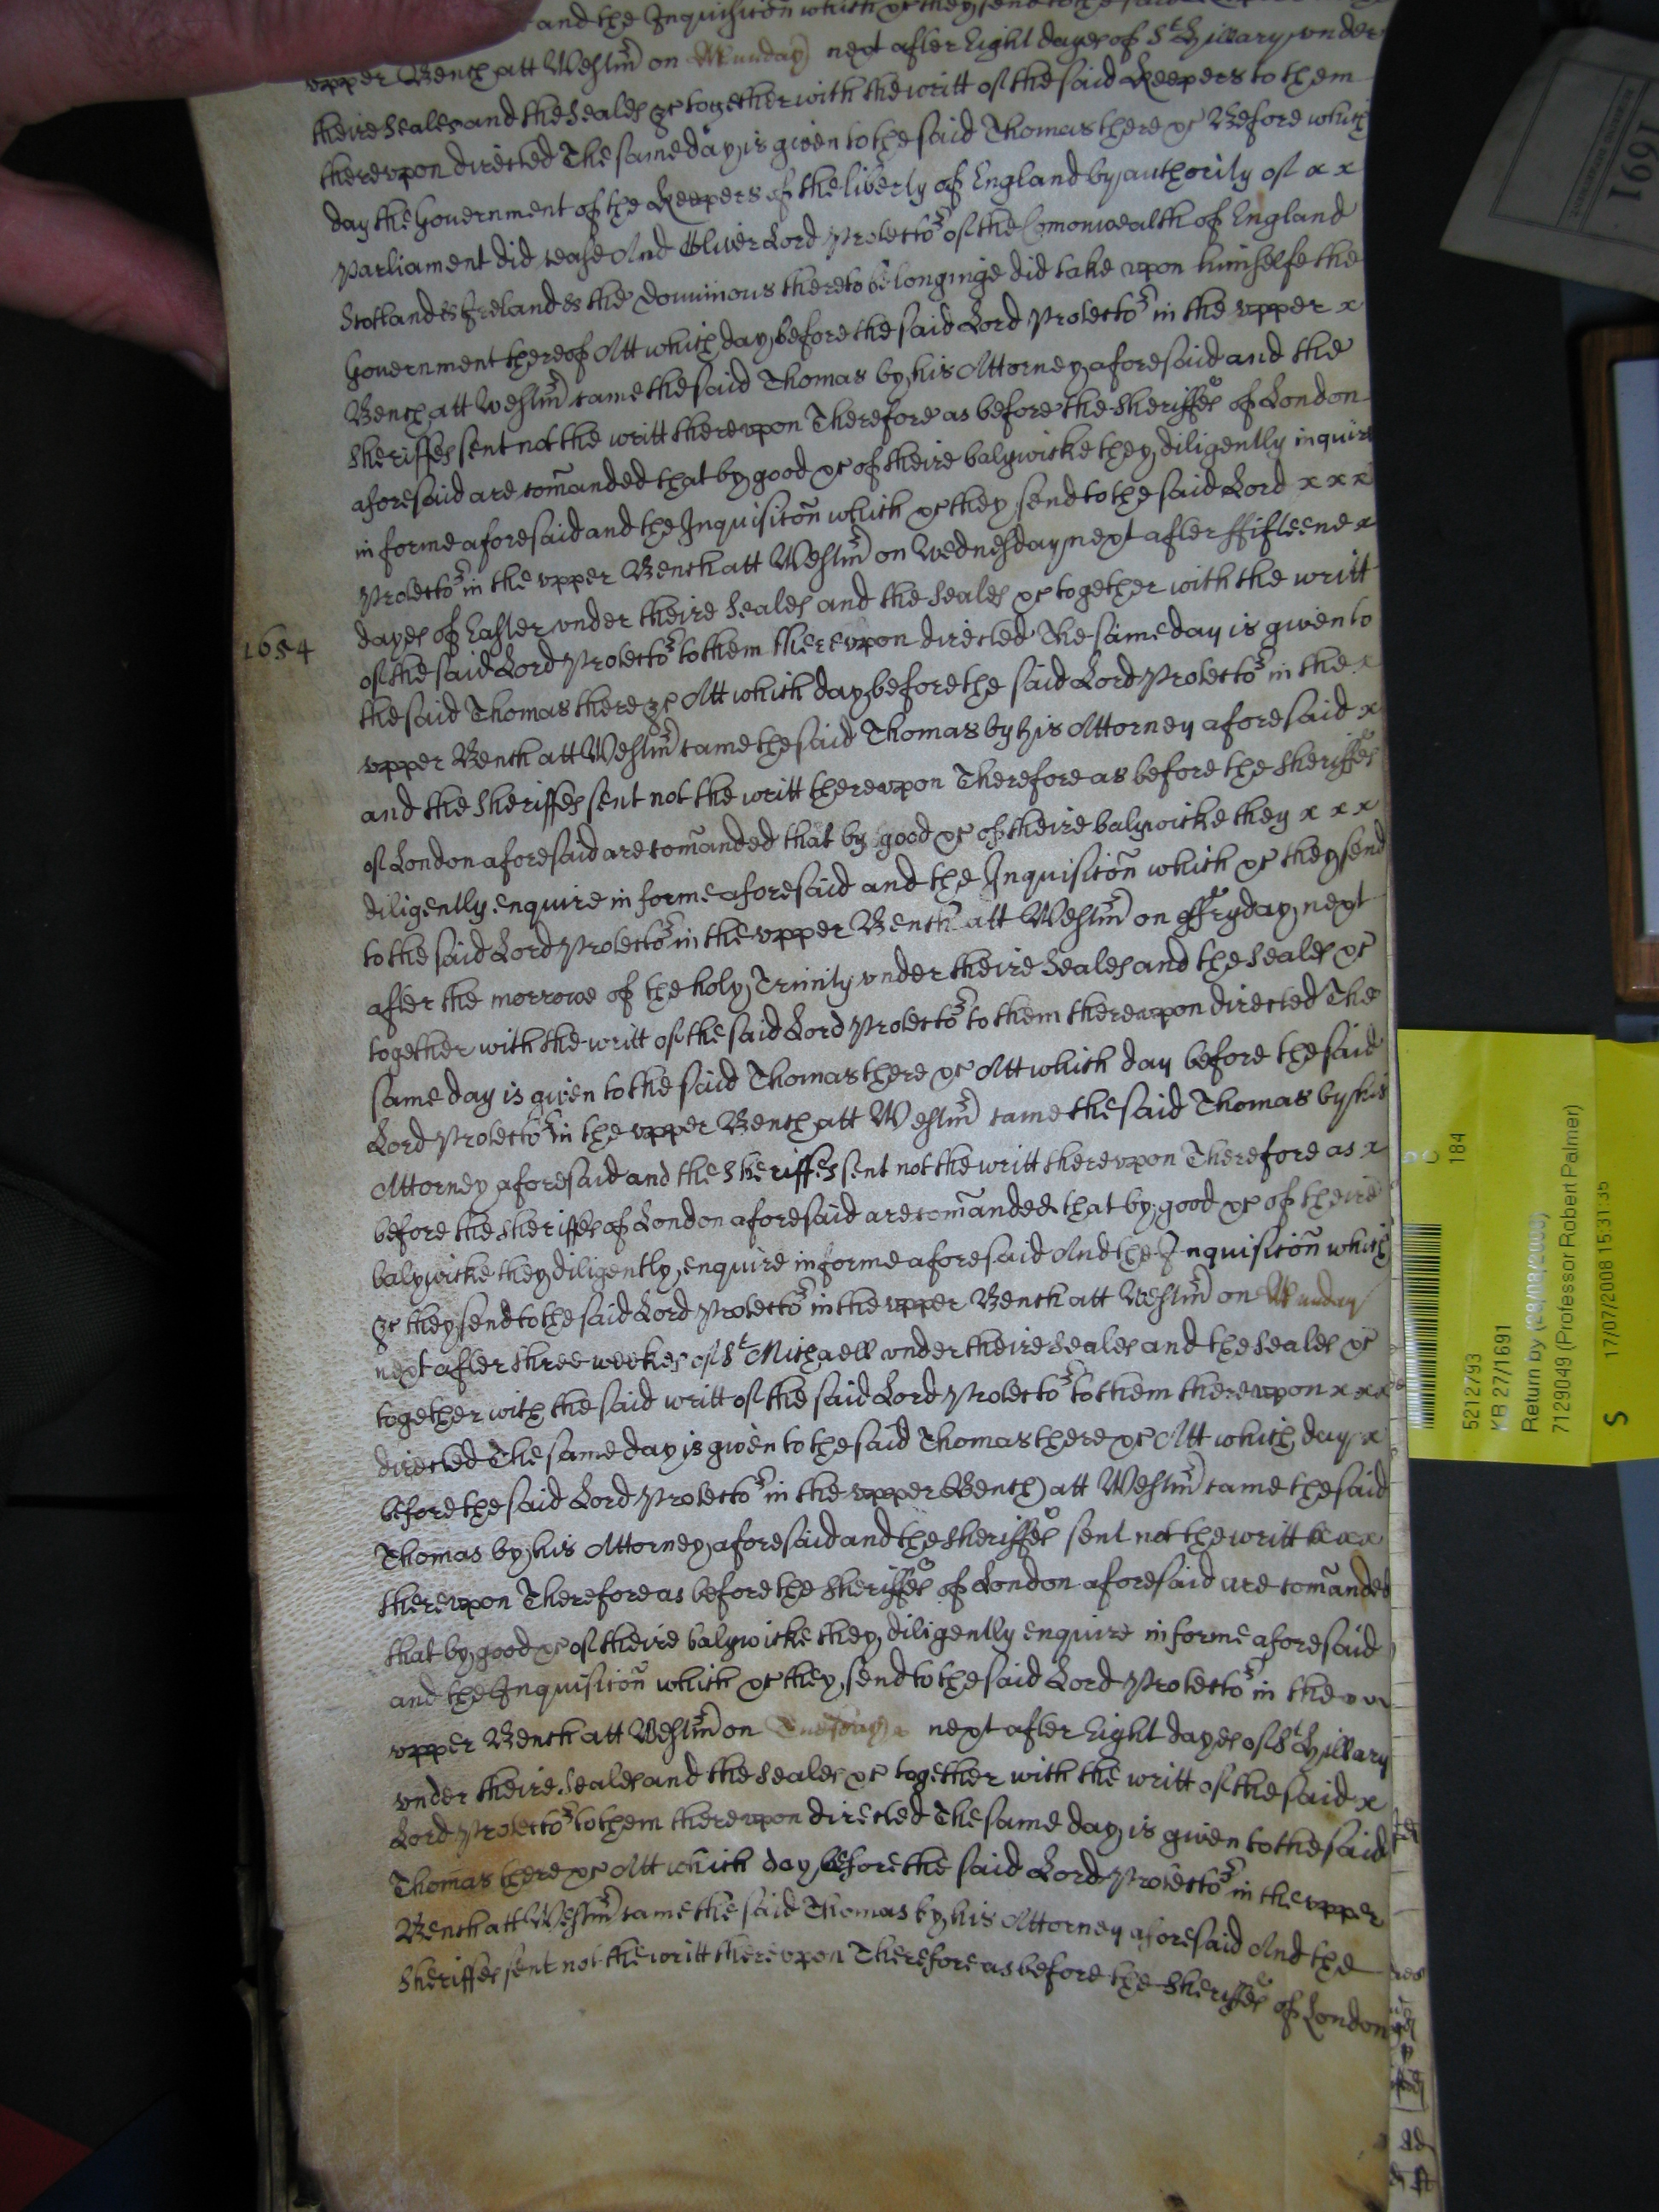 and the Inquisicōn which &c they send to the said
vpper Bench att Westm̄ on Munday next after Eight dayes of St Hillary vnder
theire Seales and the Seales &c together with the writt of the said Keepers to them
therevpon directed The same day is given to the said Thomas there &c Before which
day the Government of the Keepers of the liberty of England by authority of x x
Parliament did cease And Oliver Lord Protector of the Comonwealth of England
Scotland & Ireland & the Dominions thereto belonginge did take vpon himselfe the
Government thereof Att which day before the said Lord Protector in the vpper x
Bench att Westm̄ came the said Thomas by his Attorney aforesaid and the
Sheriffes sent not the writt therevpon Therefore as before the Sheriffes of London
aforesaid are com̄anded that by good &c of theire balywicke they diligently inquire
in forme aforesaid and the Inquisicōn which &c they send to the said Lord x x x
Protector in the vpper Bench att Westm̄ on Wednesday next after ffifteene x
dayes of Easter vnder theire Seales and the Seales &c together with the writt
1654
of the said Lord Protector to them therevpon directed The same day is given to
the said Thomas there &c Att which day before the said Lord Protector in the x
vpper Bench att Westm̄ came the said Thomas by his Attorney aforesaid x
and the Sheriffes sent not the writt therevpon Therefore as before the Sheriffes
of London aforesaid are com̄anded that by good &c of theire balywicke they x x x
diligently enquire in forme aforesaid and the Inquisicōn which &c they send
to the said Lord Protector in the vpper Bench att Westm̄ on ffryday next
after the morrowe of the holy Trinity vnder theire Seales and the Seales &c
together with the writt of the said Lord Protector to them therevpon directed The
same day is given to the said Thomas there &c Att which day before the said
Lord Protector in the vpper Bench att Westm̄ came the said Thomas by his
Attorney aforesaid and the Sheriffes sent not the writt therevpon Therefore as x
before the Sheriffes of London aforesaid are com̄anded that by good &c of theire
balywicke they diligently enquire in forme aforesaid And the Inquisicōn which
&c they send to the said Lord Protector in the vpper Bench att Westm̄ on Munday
next after three weekes of St Michaell vnder theire Seales and the Seales &c
together with the said writt of the said Lord Protector to them therevpon x x x
directed The same day is given to the said Thomas there &c Att which day x
before the said Lord Protector in the vpper Bench att Westm̄ came the said
Thomas by his Attorney aforesaid and the Sheriffes sent not the writt x x x
therevpon Therefore as before the Sheriffes of London aforesaid are com̄anded
that by good &c of theire balywicke they diligently enquire in forme aforesaid
and the Inquisicōn which &c they send to the said Lord Protector in the
vpper Bench att Westm̄ on Tuesday next after Eight dayes of St Hillary
vnder theire Seales and the Seales &c together with the writt of the said x
Lord Protector to them therevpon directed The same day is given to the said
Thomas there &c Att which day before the said Lord Protector in the vpper
Bench att Westm̄ came the said Thomas by his Attorney aforesaid And the
Sheriffes sent not the writt therevpon Therefore as before the Sheriffes of London
1691
184
5212793
KB 27/1691
Return by (28/08/2008)
7129049 (Professor Robert Palmer)
S 17/07/2008 15:31:35